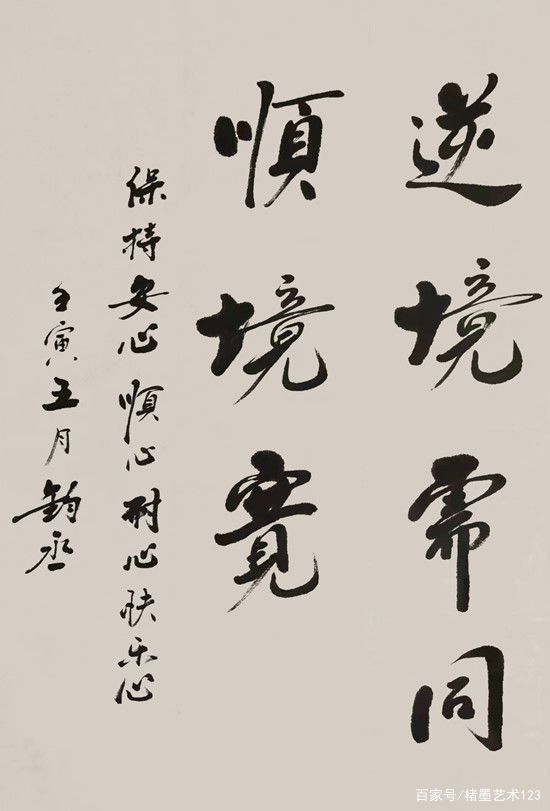 逆境需同
順境寬
保持安心順心耐心快乐心
壬寅五月鈞丞
百家号/楮墨艺术123